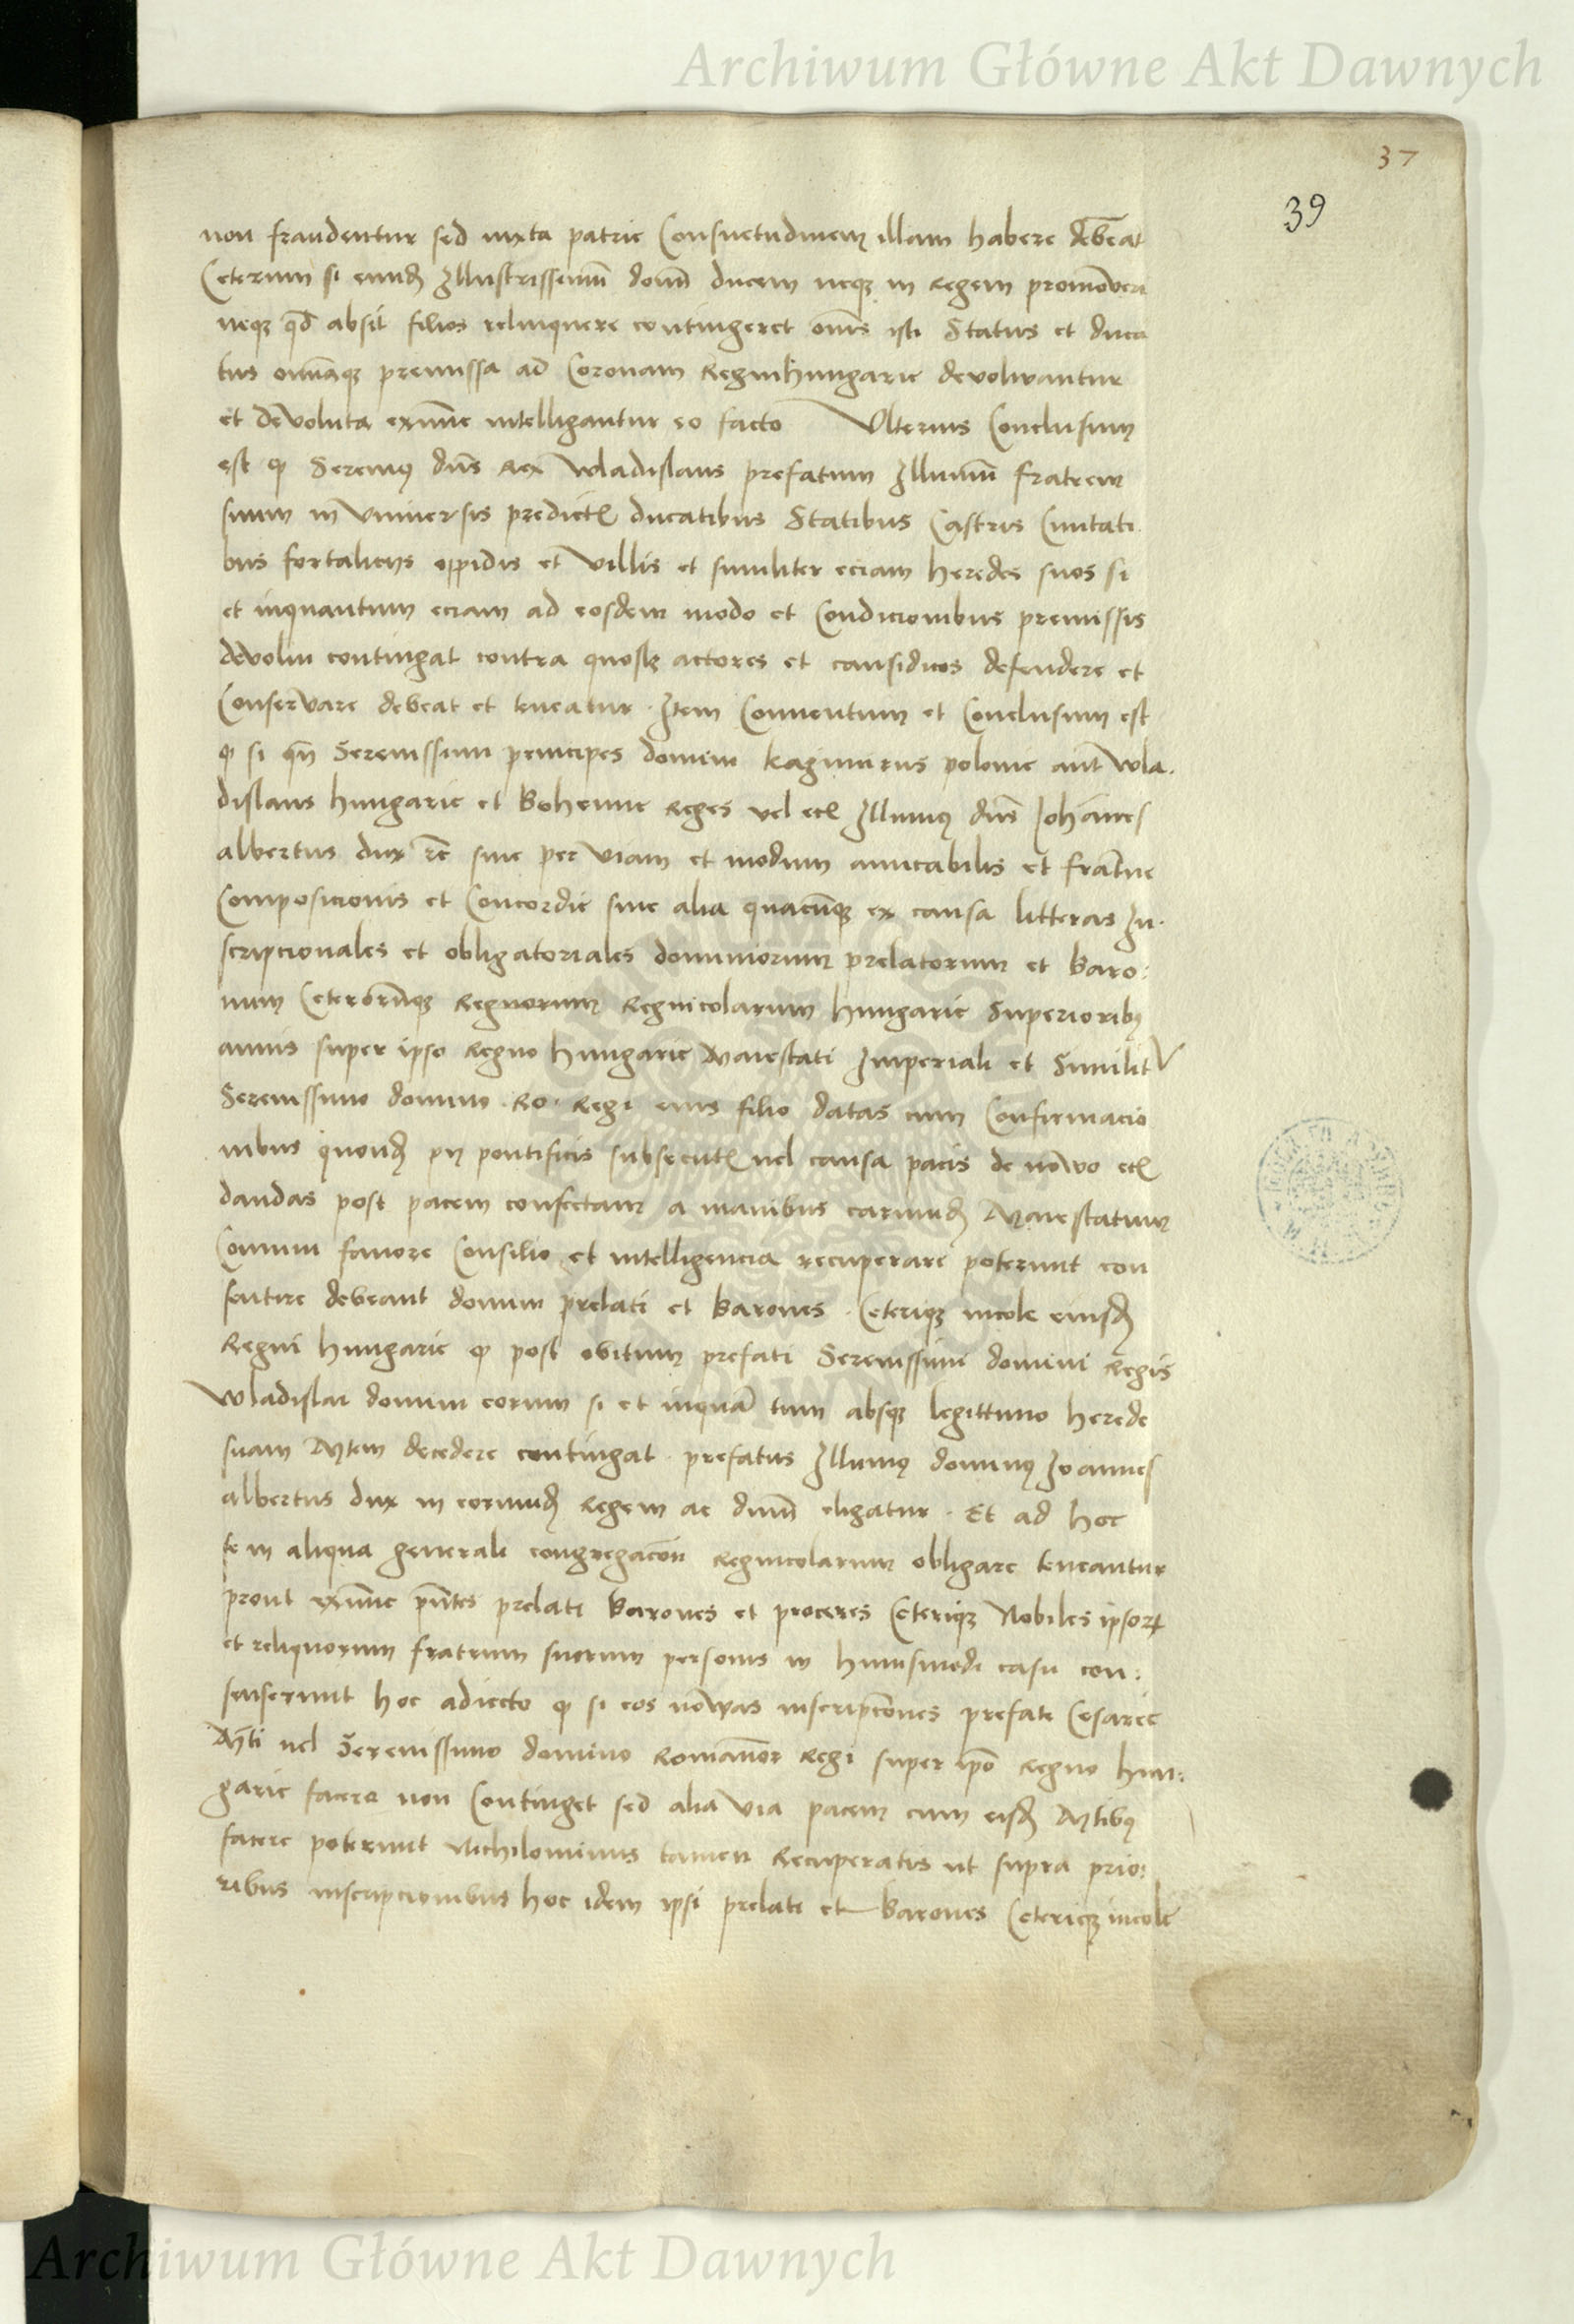 Archiwum Główne Akt Dawnych
37
39
non fraudentur sed iuxta patrie Consuetudinem illam habere debeat
Ceterum si eundē Illustrissimū domī ducem neqʒ in regem promoveri
neqʒ qd absit filios relinquere contingeret oms isti Status et duca
tus omīaqʒ premissa ad Coronam Regni hungarie devolvantur
et devoluta exnūc intelligantur eo facto Ulterius Conclusum
est ꝙ Serenus dns Rex Wladislaus prefatum Illumū fratrem
suum in Universis predictꝭ ducatibus Statibus Castris Civitati
bus fortaliciis oppidis et Villis et similiter eciam heredes suos si
et inquantum eciam ad eosdem modo et Condicionibus premissis
devolui contingat contra quoslꝫ actores et causidicos defendere et
Conservare debeat et teneatur. Item Conventum et Conclusum est
ꝙ si qn Serenissimi principes domini Kazimirus polonie aut Wla.
dislaus hungarie et Bohemie Reges vel ecꝭ Illumus dns Johānes
albertus dux rc sive per viam et modum amicabilis et fratne
Composicionis et Concordie sive alia quacūqʒ ex causa litteras In.
scripcionales et obligatoriales dominiorum prelatorum et Baro:
num Ceterorūqʒ Regnorum Regnicolarum hungarie Superioribꝫ
annis super ipso Regno hungarie Maiestati Imperiali et Similit
Serenissimo domino. Ro. Regi eius filio datas cum Confirmacio
nibus quondē pn pontificis subsecutꝭ vel causa pacis de novo ecꝭ
dandas post pacem confectam a manibus earundē Maiestatum
Comuni favore Consilio et intelligencia recuperare poterunt con
sentire debeant domini prelati et Barones. Ceteriqʒ incole eiusdē
Regni hungarie ꝙ post obitum prefati Serenissimi domini Regis
Wladislai domini eorum si et inquā tum absqʒ legittimo herede
suam Mtem decedere contingat. prefatus Illumus dominus Joannes
albertus dux in eorundē Regem ac dnm eligatur. Et ad hoc
se in aliqua generali congregacōn Regnicolarum obligare teneantur
prout exnūc pntes prelati Barones et proceres Ceteriqʒ Nobiles ipsoꝝ
et reliquorum fratrum suorum personis in huiusmodi casu con:
senserunt hoc adiecto ꝙ si eos novas inscripcōnes prefate Cesaree
Mti vel Serenissimo domino Romanor Regi super ipo Regno hun:
garie facere non Continget sed alia via pacem cum eisdē Mtibꝫ
facere poterunt Nichilominus tamen Recuperatis ut supra prio:
ribus inscripcionibus hoc idem ipsi prelati et Barones Ceteriqʒ incole
Archiwum Główne Akt Dawnych